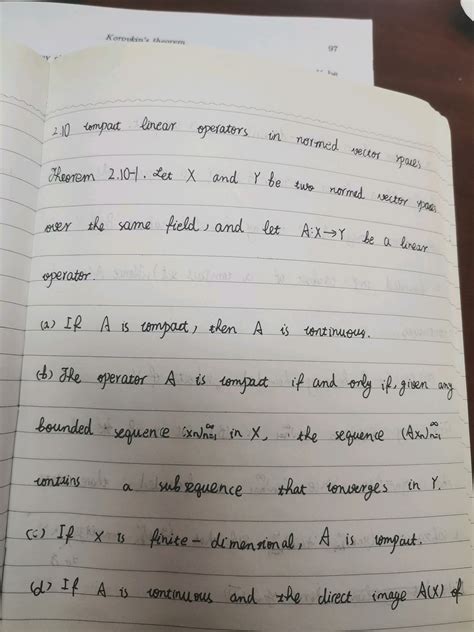 Korovkin's theorem 97
2.10 compact linear operators in normed vector spaces
Theorem 2.10-1. Let X and Y be two normed vector spaces
over the same field, and let A:X→Y be a linear
operator.
(a) If A is compact, then A is continuous.
(b) The operator A is compact if and only if, given any
bounded sequence (xn)n=1^∞ in X, the sequence (Axn)n=1^∞
contains a subsequence that converges in Y.
(c) If X is finite-dimensional, A is compact.
(d) If A is continuous and the direct image A(X) of